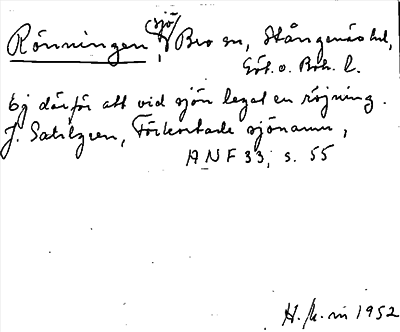 Rönningen, (sjö) Bro sn, Stångenäs hd,
Göt. o. Boh. l.
Ej därför att vid sjön legat en röjning.
J. Sahlgren, Förkortade sjönamn,
ANF 33, s. 55
1952